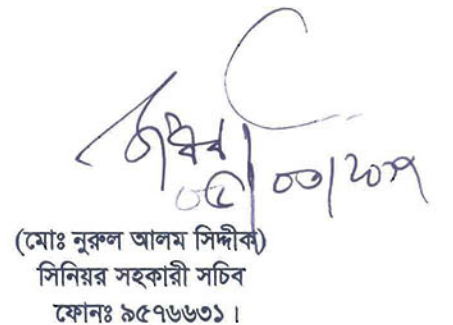 ০৫/০৩/২০১৭
(মোঃ নুরুল আলম সিদ্দীক)
সিনিয়র সহকারী সচিব
ফোনঃ ৯৫৭৬৬৩১।